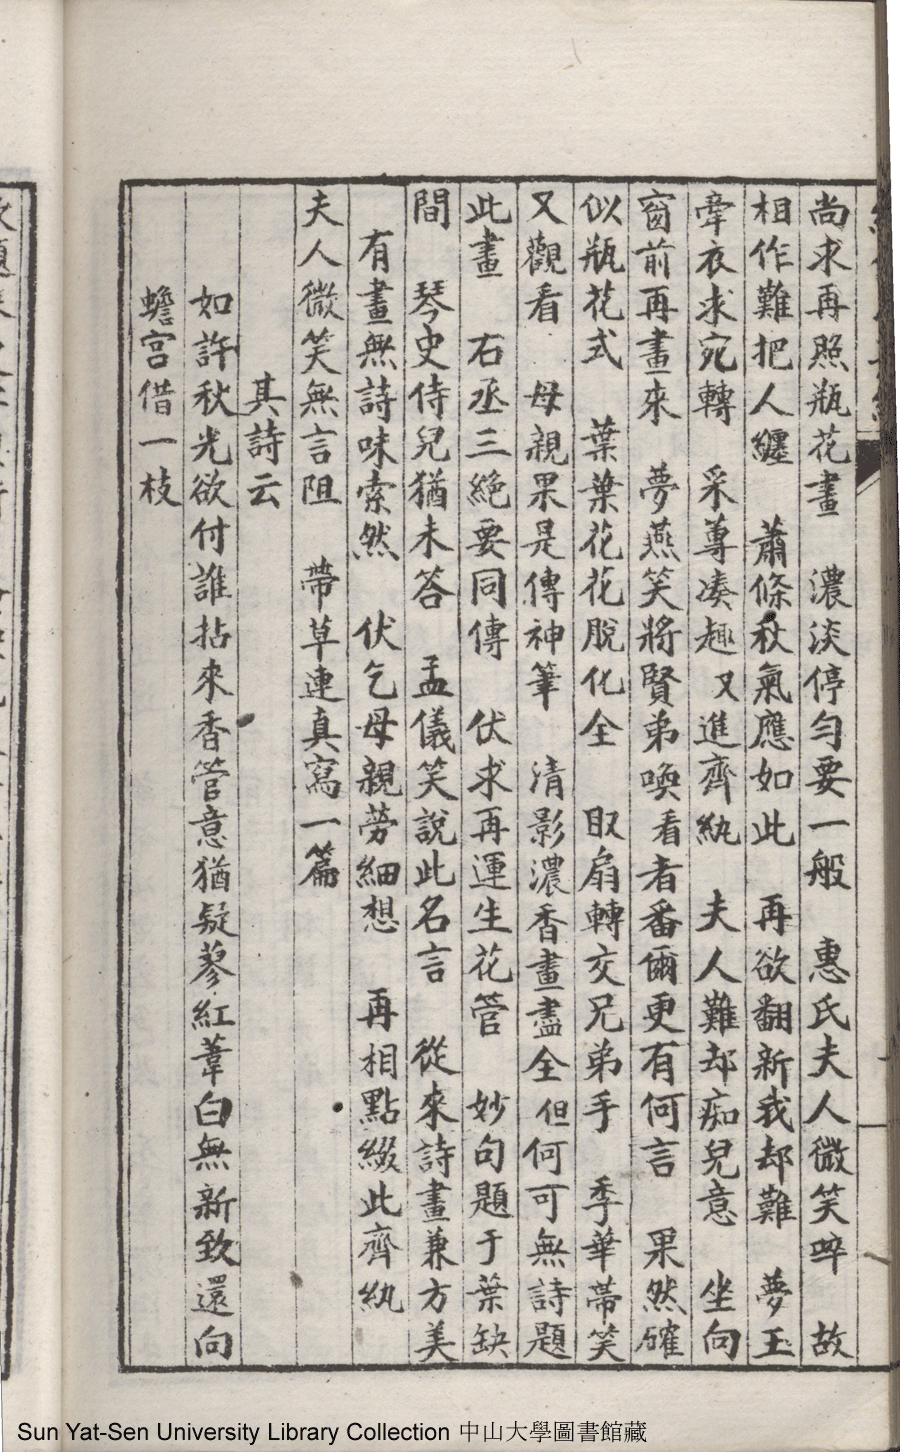 尚求再照瓶花畫　濃淡停勻要一般　惠氏夫人微笑啐　故
相作難把人纏　蕭條秋氣應如此　再欲翻新我却難　夢玉
牽衣求宛轉　采蓴湊趣又進齊紈　夫人難却痴兒意　坐向
窗前再畫來　夢燕笑將賢弟喚　看者番儞更有何言　果然確
似瓶花式　葉葉花花脫化全　取扇轉交兄弟手　季華蒂笑
又觀看　母親果是傳神筆　清影濃香畫盡全　但何可無詩題
此畫　石丞三絕要同傳　伏求再運生花管　妙句題于葉缺
間　琴史侍兒猶未答　孟儀笑說此名言　從來詩畫兼方美
有畫無詩味索然　伏乞母親勞細想　再相點綴此齊紈
夫人微笑無言阻　帶草連真寫一篇
其詩云
如許秋光欲付誰拈來香管意猶疑蓼紅葦白無新致還向
蟾宮借一枝
Sun Yat-Sen University Library Collection 中山大學圖書館藏